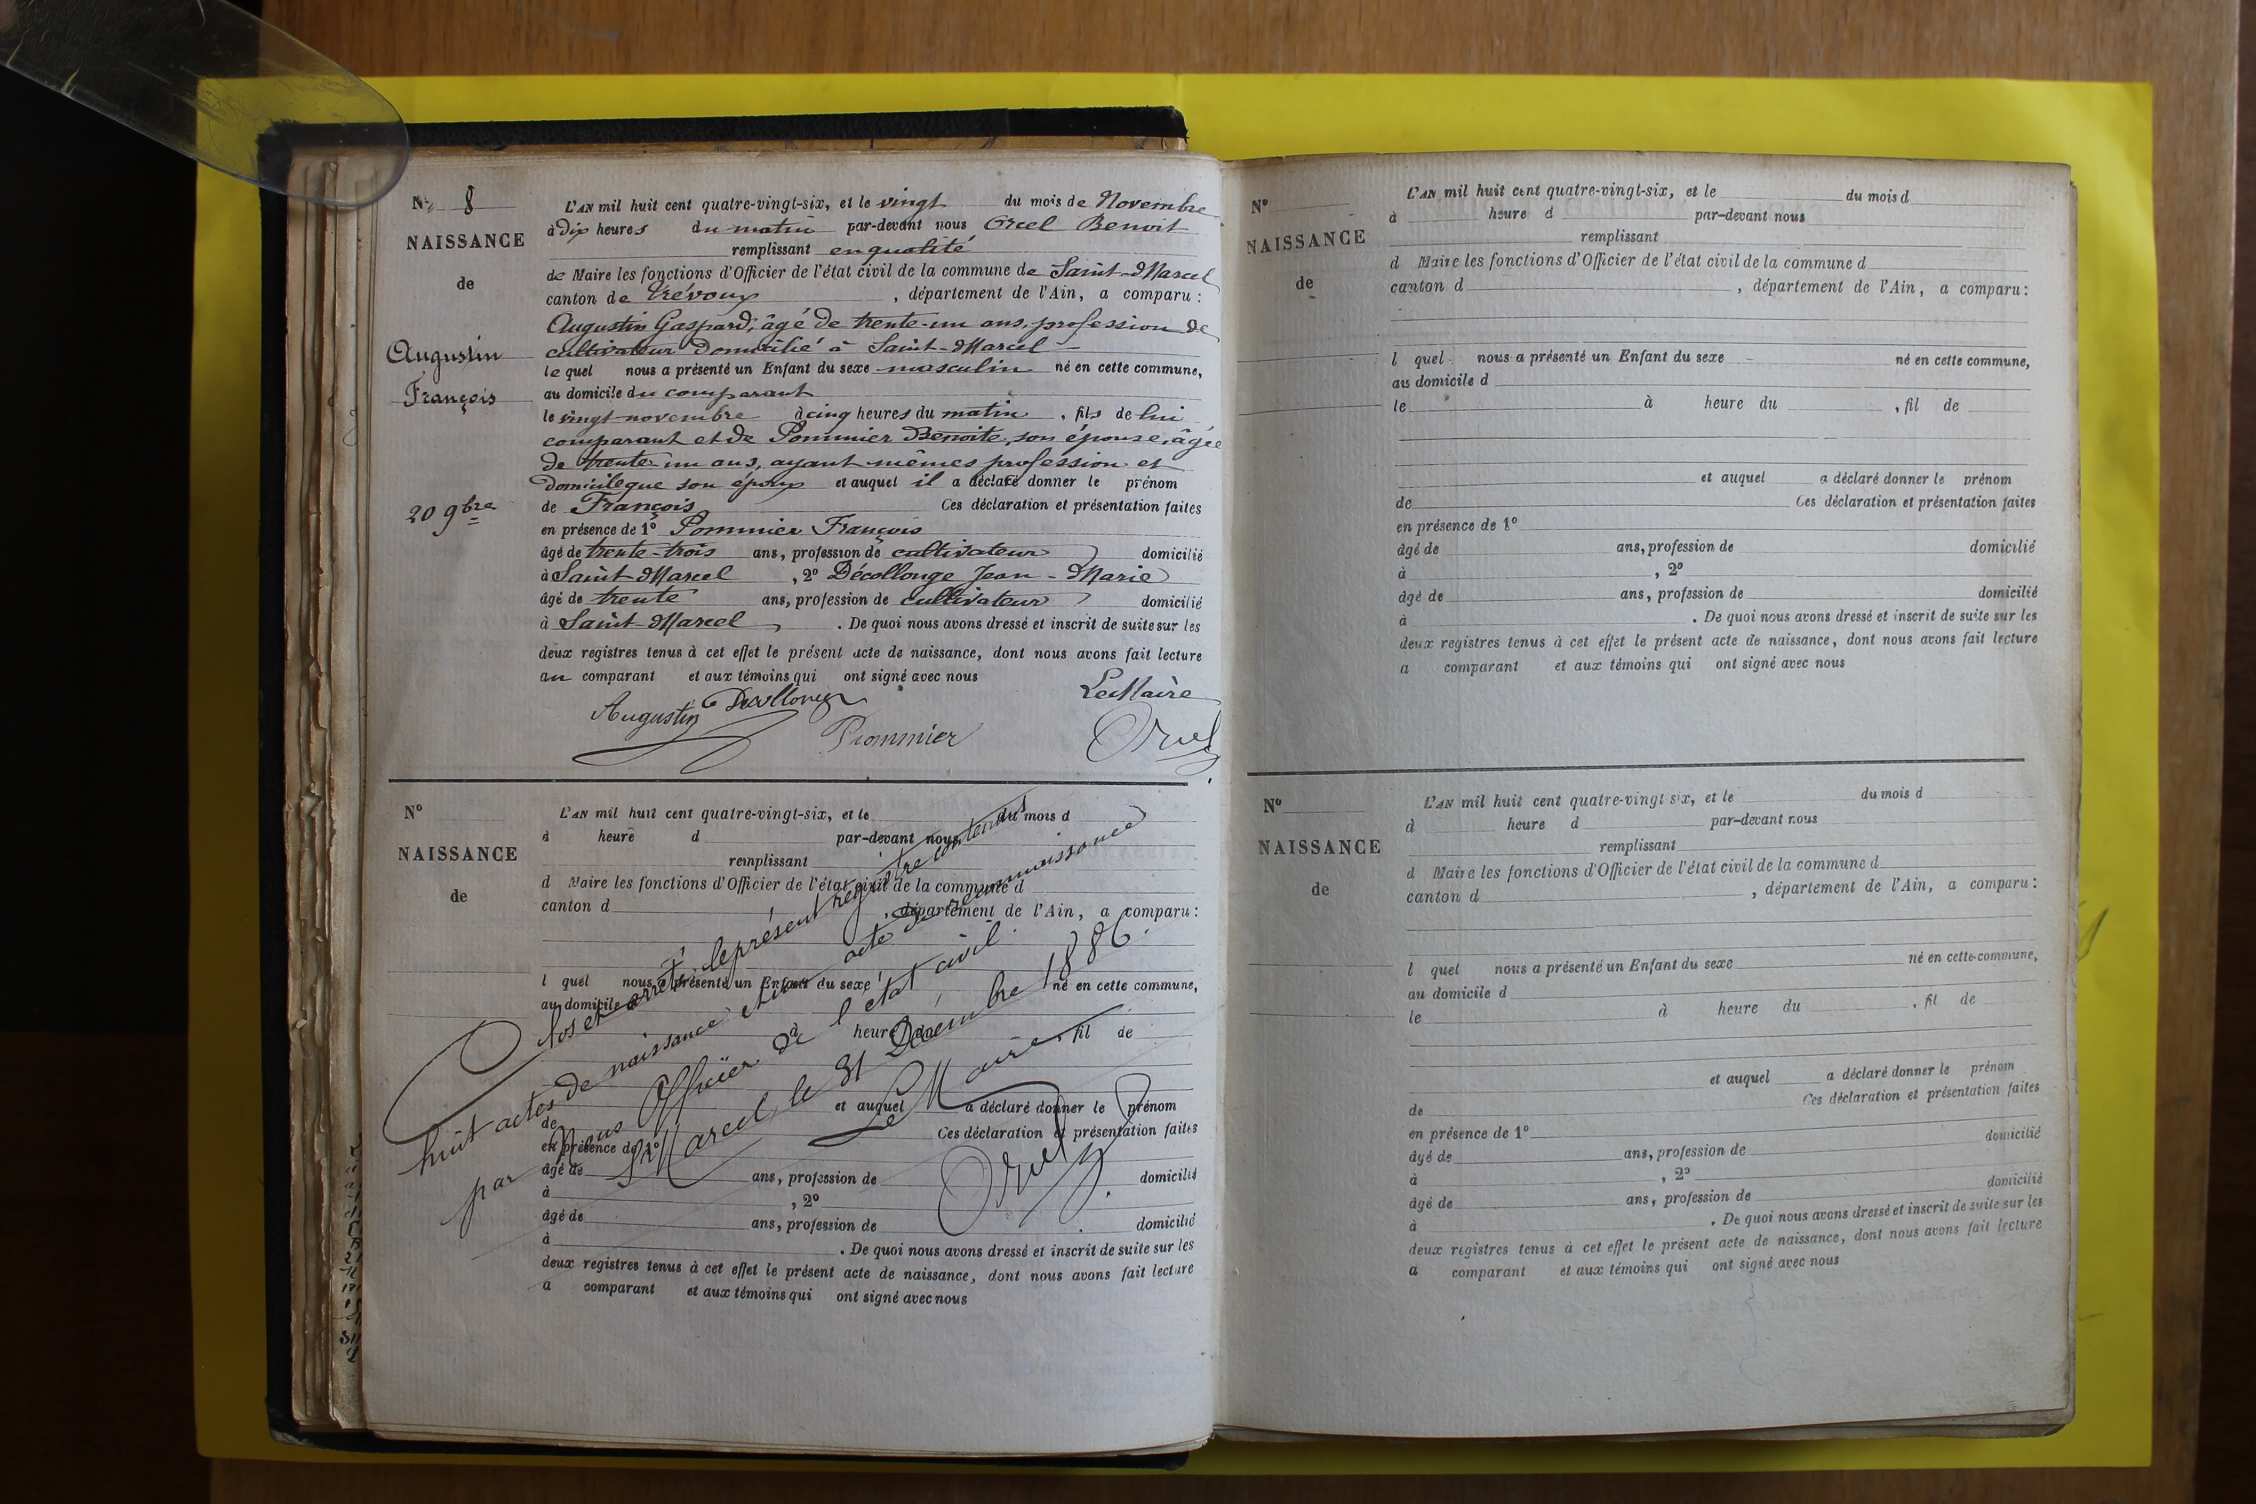 N° 8
NAISSANCE
de
Augustin
François
20 9bre
L'AN mil huit cent quatre-vingt-six, et le vingt du mois de Novembre
à dix heures du matin par-devant nous Orcel Benoit
remplissant en qualité
de Maire les fonctions d'Officier de l'état civil de la commune de Saint-Marcel
canton de Trévoux , département de l'Ain, a comparu :
Augustin Gaspard, âgé de trente-un ans, profession de
cultivateur domicilié à Saint-Marcel
le quel nous a présenté un Enfant du sexe masculin né en cette commune,
au domicile du comparant
le vingt novembre à cinq heures du matin , fils de lui
comparant et de Pommier Benoite, son épouse, âgée
de trente-un ans, ayant mêmes profession et
domicile que son époux et auquel il a déclaré donner le prénom
de François Ces déclaration et présentation faites
en présence de 1° Pommier François
âgé de trente-trois ans, profession de cultivateur domicilié
à Saint-Marcel , 2° Décollonge Jean-Marie
âgé de trente ans, profession de cultivateur domicilié
à Saint-Marcel . De quoi nous avons dressé et inscrit de suite sur les
deux registres tenus à cet effet le présent acte de naissance, dont nous avons fait lecture
au comparant et aux témoins qui ont signé avec nous
Le Maire
Augustin Decollonge
Pommier Orcel
N°
NAISSANCE
de
L'AN mil huit cent quatre-vingt-six, et le du mois d
à heure d par-devant nous
remplissant
d Maire les fonctions d'Officier de l'état civil de la commune d
canton d , département de l'Ain, a comparu :
l quel nous a présenté un Enfant du sexe né en cette commune,
au domicile d
à heure du , fil de
et auquel a déclaré donner le prénom
de Ces déclaration et présentation faites
en présence de 1°
âgé de ans, profession de domicilié
à , 2°
âgé de ans, profession de domicilié
à . De quoi nous avons dressé et inscrit de suite sur les
deux registres tenus à cet effet le présent acte de naissance, dont nous avons fait lecture
a comparant et aux témoins qui ont signé avec nous
Clos et arrêté le présent registre contenant
huit actes de naissance et un acte de reconnaissance
par Nous Officier de l'état civil.
St Marcel le 31 Décembre 1886.
Le Maire
Orcel
N°
NAISSANCE
de
L'AN mil huit cent quatre-vingt-six, et le du mois d
à heure d par-devant nous
remplissant
d Maire les fonctions d'Officier de l'état civil de la commune d
canton d , département de l'Ain, a comparu :
l quel nous a présenté un Enfant du sexe né en cette commune,
au domicile d
le à heure du , fil de
et auquel a déclaré donner le prénom
de Ces déclaration et présentation faites
en présence de 1°
âgé de ans, profession de domicilié
à , 2°
âgé de ans, profession de domicilié
à . De quoi nous avons dressé et inscrit de suite sur les
deux registres tenus à cet effet le présent acte de naissance, dont nous avons fait lecture
a comparant et aux témoins qui ont signé avec nous
N°
NAISSANCE
de
L'AN mil huit cent quatre-vingt six, et le du mois d
à heure d par-devant nous
remplissant
d Maire les fonctions d'Officier de l'état civil de la commune d
canton d , département de l'Ain, a comparu :
l quel nous a présenté un Enfant du sexe né en cette commune,
au domicile d
le à heure du , fil de
et auquel a déclaré donner le prénom
de Ces déclaration et présentation faites
en présence de 1°
âgé de ans, profession de domicilié
à , 2°
âgé de ans, profession de domicilié
à . De quoi nous avons dressé et inscrit de suite sur les
deux registres tenus à cet effet le présent acte de naissance, dont nous avons fait lecture
a comparant et aux témoins qui ont signé avec nous